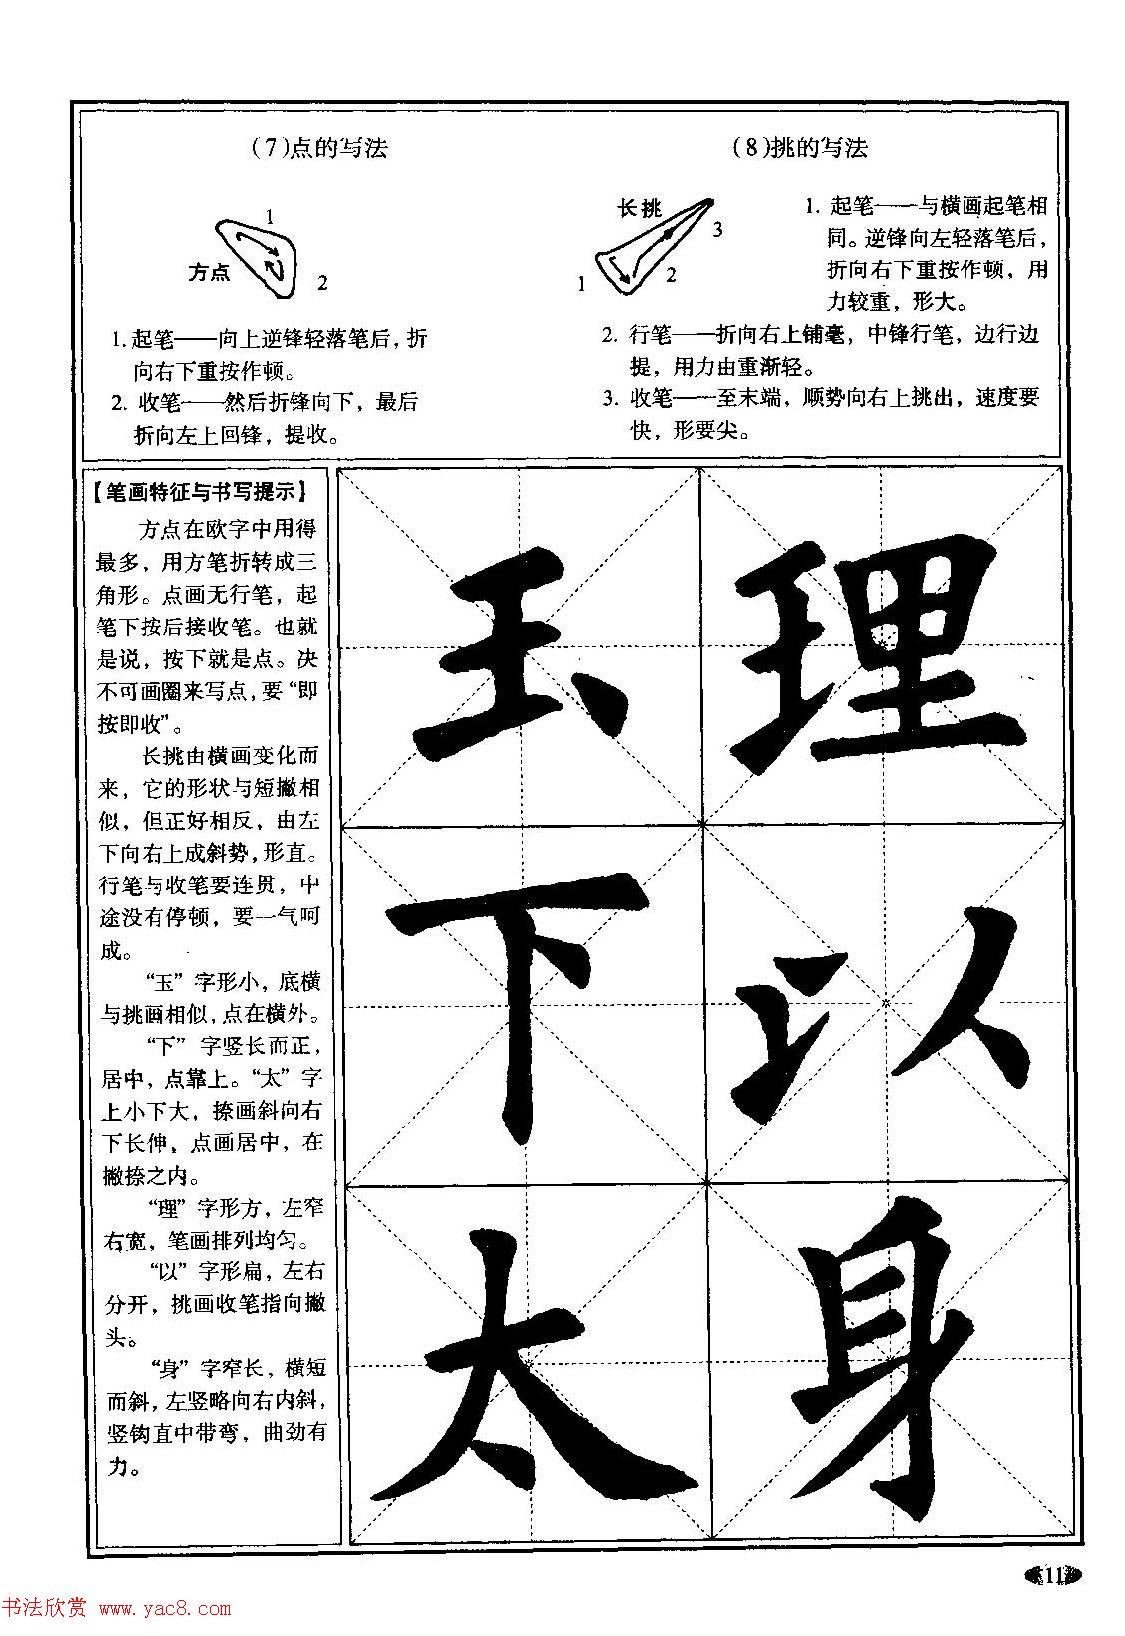 (7)点的写法
1
方点
2
1.起笔——向上逆锋轻落笔后,折
向右下重按作顿。
2. 收笔——然后折锋向下，最后
折向左上回锋，提收。
(8)挑的写法
长挑
3
1
2
1. 起笔——与横画起笔相
同。逆锋向左轻落笔后,
折向右下重按作顿，用
力较重，形大。
2. 行笔——折向右上铺毫，中锋行笔，边行边
提，用力由重渐轻。
3. 收笔——至末端，顺势向右上挑出，速度要
快，形要尖。
【笔画特征与书写提示】
方点在欧字中用得
最多，用方笔折转成三
角形。点画无行笔，起
笔下按后接收笔。也就
是说，按下就是点。决
不可画圈来写点,要“即
按即收”。
长挑由横画变化而
来，它的形状与短撇相
似，但正好相反，由左
下向右上成斜势,形直。
行笔与收笔要连贯，中
途没有停顿，要一气呵
成。
“玉”字形小，底横
与挑画相似,点在横外。
“下”字竖长而正，
居中，点靠上。“太”字
上小下大，捺画斜向右
下长伸，点画居中，在
撇捺之内。
“理”字形方，左窄
右宽，笔画排列均匀。
“以”字形扁，左右
分开，挑画收笔指向撇
头。
“身”字窄长，横短
而斜,左竖略向右内斜,
竖钩直中带弯，曲劲有
力。
玉 理
下 以
太 身
11
书法欣赏 www.yac8.com